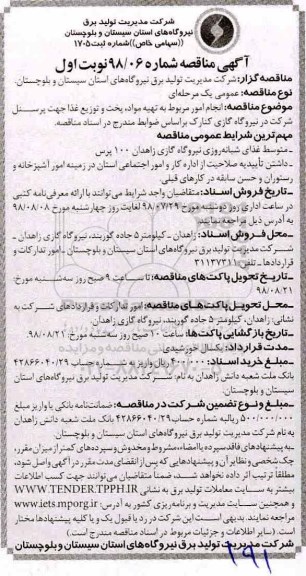 شرکت مدیریت تولید برق
نیروگاه‌های استان سیستان و بلوچستان
((سهامی خاص))شماره ثبت ۱۷۰۵
آگهی مناقصه شماره ۹۸/۰۶ نوبت اول
مناقصه گزار: شرکت مدیریت تولید برق نیروگاه‌های استان سیستان و بلوچستان.
نوع مناقصه: عمومی یک مرحله‌ای
موضوع مناقصه: انجام امور مربوط به تهیه مواد، پخت و توزیع غذا جهت پرسنل
شرکت در نیروگاه گازی کنارک براساس ضوابط مندرج در اسناد مناقصه.
مهم‌ترین شرایط عمومی مناقصه
_متوسط غذای شبانه‌روزی نیروگاه گازی زاهدان ۱۰۰ پرس
_داشتن تأییدیه صلاحیت از اداره کار و امور اجتماعی استان در زمینه امور آشپزخانه و
رستوران و حسن سابقه در کارهای قبلی
_تاریخ فروش اسناد: متقاضیان واجد شرایط می‌توانند با ارائه معرفی‌نامه کتبی
در ساعت اداری روز دوشنبه مورخ ۹۸/۰۷/۲۹ لغایت روز چهارشنبه مورخ ۹۸/۰۸/۰۸
به آدرس ذیل مراجعه نمایند
_محل فروش اسناد: زاهدان - کیلومتر ۵ جاده گوربند، نیروگاه گازی زاهدان -
شرکت مدیریت تولید برق نیروگاه‌های استان سیستان و بلوچستان - امور تدارکات و
قراردادها - تلفن: ۳۱۱۳۷۲۱۱
_تاریخ تحویل پاکت‌های مناقصه: تا ساعت ۹ صبح روز سه‌شنبه مورخ
۹۸/۰۸/۲۱
_محل تحویل پاکت‌های مناقصه: امور تدارکات و قراردادهای شرکت به
نشانی: زاهدان، کیلومتر ۵ جاده گوربند، نیروگاه گازی زاهدان.
_تاریخ بازگشایی پاکت‌ها: ساعت ۱۰ صبح روز سه‌شنبه مورخ ۹۸/۰۸/۲۱
_مدت قرارداد: یکسال خورشیدی
_مبلغ خرید اسناد: ریال واریز به شماره حساب ۴۲۸۶۶۰۴۰/۲۹
بانک ملت شعبه دانش زاهدان به نام: شرکت مدیریت تولید برق نیروگاه‌های استان
سیستان و بلوچستان.
_مبلغ و نوع تضمین شرکت در مناقصه: ضمانت‌نامه بانکی یا واریز مبلغ
ریالبه شماره حساب ۴۲۸۶۶۰۴۰/۲۹ بانک ملت شعبه دانش زاهدان
به نام شرکت مدیریت تولید برق نیروگاه‌های استان سیستان و بلوچستان
_به پیشنهادهای فاقد سپرده یا امضاء، مشروط و مخدوش و سپرده‌های کمتر از میزان مقرر،
چک شخصی و نظایر آن و پیشنهادهایی که پس از انقضای مدت مقرر در آگهی واصل شود،
مطلقاً ترتیب اثر داده نخواهد شد، ضمناً متقاضیان می‌توانند جهت کسب اطلاعات
بیشتر به سایت معاملات تولید برق به نشانی WWW.TENDER.TPPH.IR
و همچنین سایت مدیریت و برنامه‌ریزی کشور به آدرس: www.iets.mporg.ir
مراجعه نمایند. بدیهی است این شرکت در رد یا قبول یک و یا کلیه پیشنهادها مختار
است.(سایر اطلاعات و جزئیات مربوط در اسناد مناقصه مندرج است.)
شرکت مدیریت تولید برق نیروگاه‌های استان سیستان و بلوچستان
۲۹۱